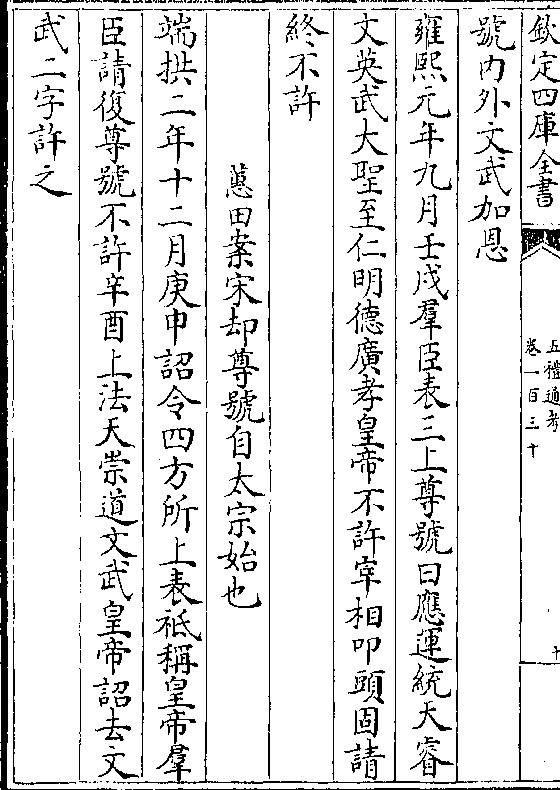 欽定四庫全書
五禮通考
卷一百三十
號內外文武加恩
雍熙元年九月壬戌羣臣表三上尊號曰應運統天睿
文英武大聖至仁明德廣孝皇帝不許宰相叩頭固請
終不許
蕙田案宋却尊號自太宗始也
端拱二年十二月庚申詔令四方所上表祗稱皇帝羣
臣請復尊號不許辛酉上法天崇道文武皇帝詔去文
武二字許之